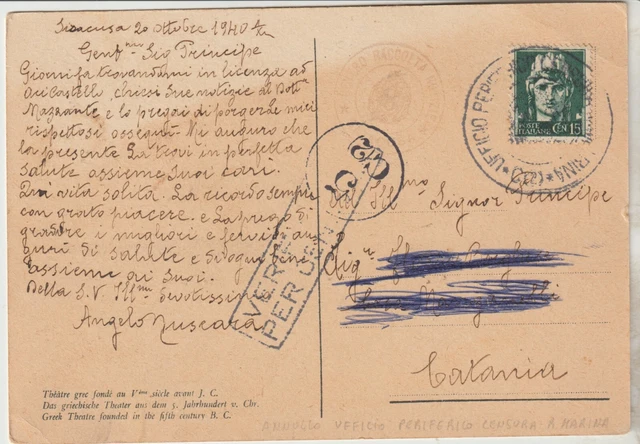 Siracusa 20 ottobre 1940 A/XVIII
Gent.mo Sig Principe
Giorni fa trovandomi in licenza ad
Aci Castello, chiesi Sue notizie al Dott.
Mazzante e lo pregai di porgerLe i miei
rispettosi ossequi. Mi auguro che
la presente La trovi in perfetta
salute assieme Suoi cari.
Qui vita solita. La ricordo sempre
con grato piacere. e La prego di
gradire i migliori e fervidi au
guri di Salute e di ogni bene
assieme ai Suoi.
Della S. V. Ill.ma devotissimo
Angelo Muscarà
Théâtre grec fondé au Vème siècle avant J. C.
Das griechische Theater aus dem 5. Jahrhundert v. Chr.
Greek Theatre founded in the fifth century B. C.
VERIF
PER CEN
POSTE
ITALIANE
CEN 15
UFFICIO PERIFE
RINA (22)
Ill.mo Signor Principe
Catania
ANNULLO UFFICIO PERIFERICO CENSURA R. MARINA